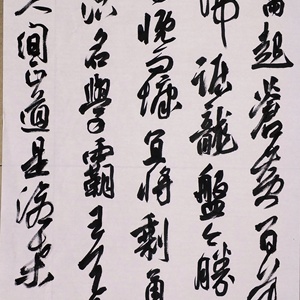 雨起蒼黃百萬
虎踞龍盤今勝
慨而慷宜將剩勇
沽名學霸王天
人間正道是滄桑